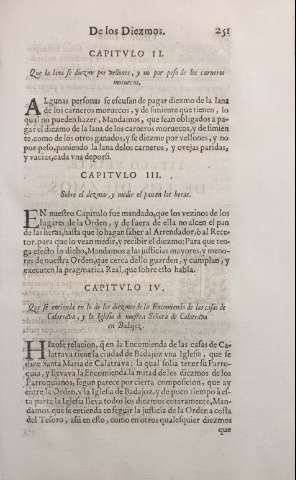 De los Diezmos. 251
CAPITVLO II.
Que la lana se diezme por vellones, y no por peso de los carneros
moruecos.
ALgunas personas se escusan de pagar diezmo de la lana
de los carneros moruecos, y de simiente que tienen, lo
qual no pueden hazer, Mandamos, que sean obligados a pa-
gar el diezmo de la lana de los carneros moruecos, y de simien
te, como de los otros ganados, y se diezme por vellones, y no
por peso, poniendo la lana de los carneros, y ovejas paridas,
y vacias, cada vna de por sì.
CAPITVLO III.
Sobre el dezmar, y medir el pan en las heras.
EN nuestro Capitulo fue mandado, que los vezinos de los
lugares de la Orden, y de fuera de ella no alcen el pan
de las heras, hasta que lo hagan saber al Arrendador, ò al Rece-
tor, para que lo vean medir, y recibir el diezmo; Para que ten-
ga efecto lo dicho, Mandamos a las justicias mayores, y meno-
res de nuestra Orden, que cerca dello guarden, y cumplan, y
executen la pragmatica Real, que sobre esto habla.
CAPITVLO IV.
Que se entienda en lo de los diezmos de la Encomienda de las casas de
Calatrava, y la Iglesia de nuestra Señora de Calatrava
en Badajoz.
HIzose relacion, q̃ en la Encomienda de las casas de Ca-
latrava tiene la ciudad de Badajoz vna Iglesia, que se
dize Santa Maria de Calatrava; la qual solia tener su Parro-
quia, y llevava la Encomienda la mitad de los diezmos de los
Parroquianos, segun parece por cierta composicion, que ay
entre la Orden, y la Iglesia de Badajoz, y de poco tiempo à es-
ta parte la Iglesia lleva todos los diezmos enteramente, Man-
damos, que se entienda en seguir la justicia de la Orden a costa
del Tesoro, assi en esto, como en otros qualesquier diezmos
que